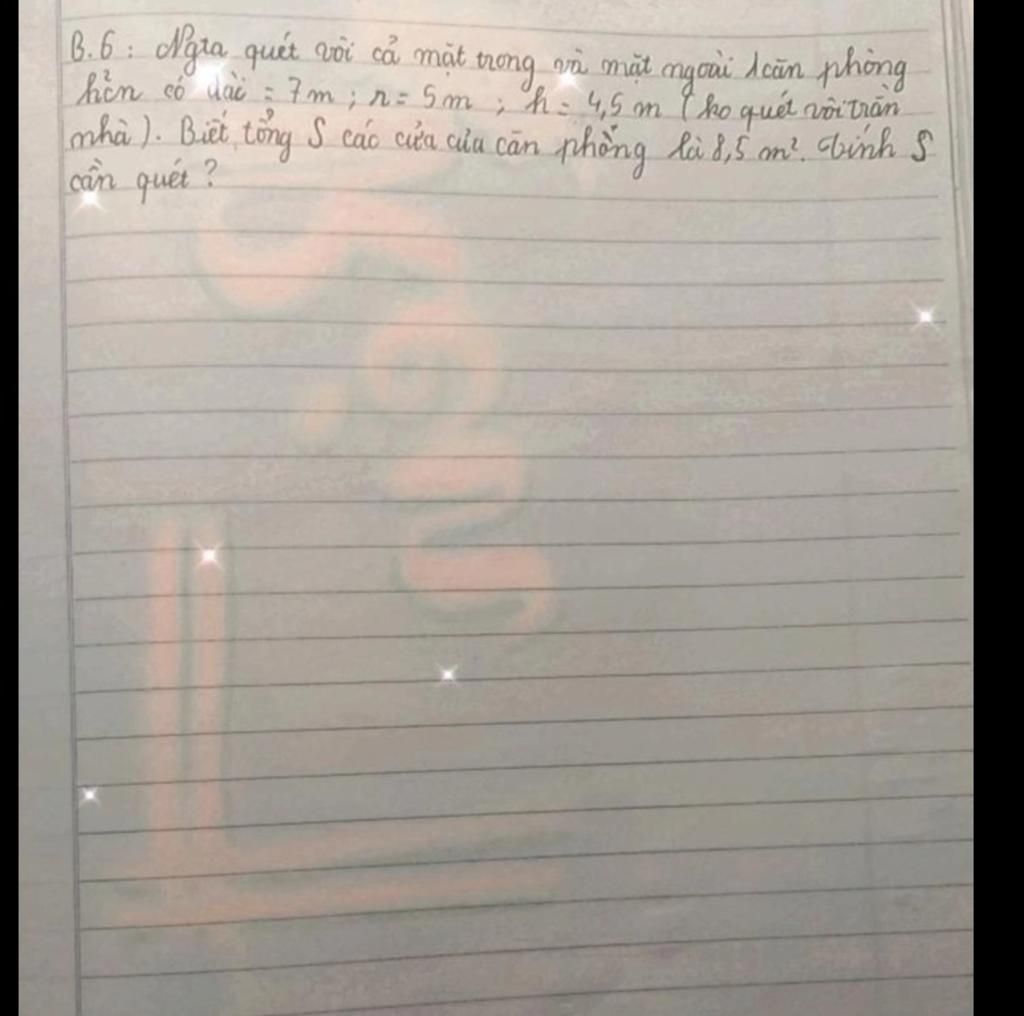 B.6: Ngta quét vôi cả mặt trong và mặt ngoài 1 căn phòng
hhcn có dài = 7m; r = 5m; h = 4,5m (ko quét vôi trần
nhà). Biết tổng S các cửa của căn phòng là 8,5 m². Tính S
cần quét?